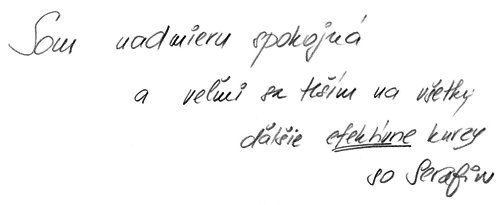 Som nadmieru spokojná
a veľmi sa teším na všetky
ďalšie efektívne kurzy
so Serafin